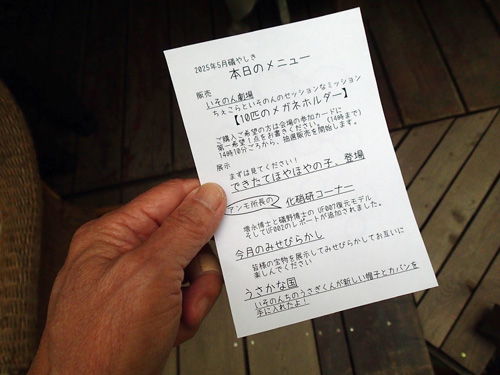 2025年5月磯やしき
本日のメニュー
販売
いそのん劇場
ちぇこらといそのんのセッションなミッション
【10匹のメガネホルダー】
ご購入ご希望の方は会場の参加カードに
第一希望1点をお書きください。(14時まで)
14時10分ごろから、抽選販売を開始します。
展示
まずは見てください!
できたてほやほやの子、登場
アンモ所長の 化硝研コーナー
増永博士と磯野博士の UF007復元モデル
そしてUF002のレポートが追加されました。
今月のみせびらかし
皆様の宝物を展示してみせびらかしてお互いに
楽しんでください
うさかな国
いそのんちのうさぎくんが新しい帽子とカバンを
手に入れたよ!